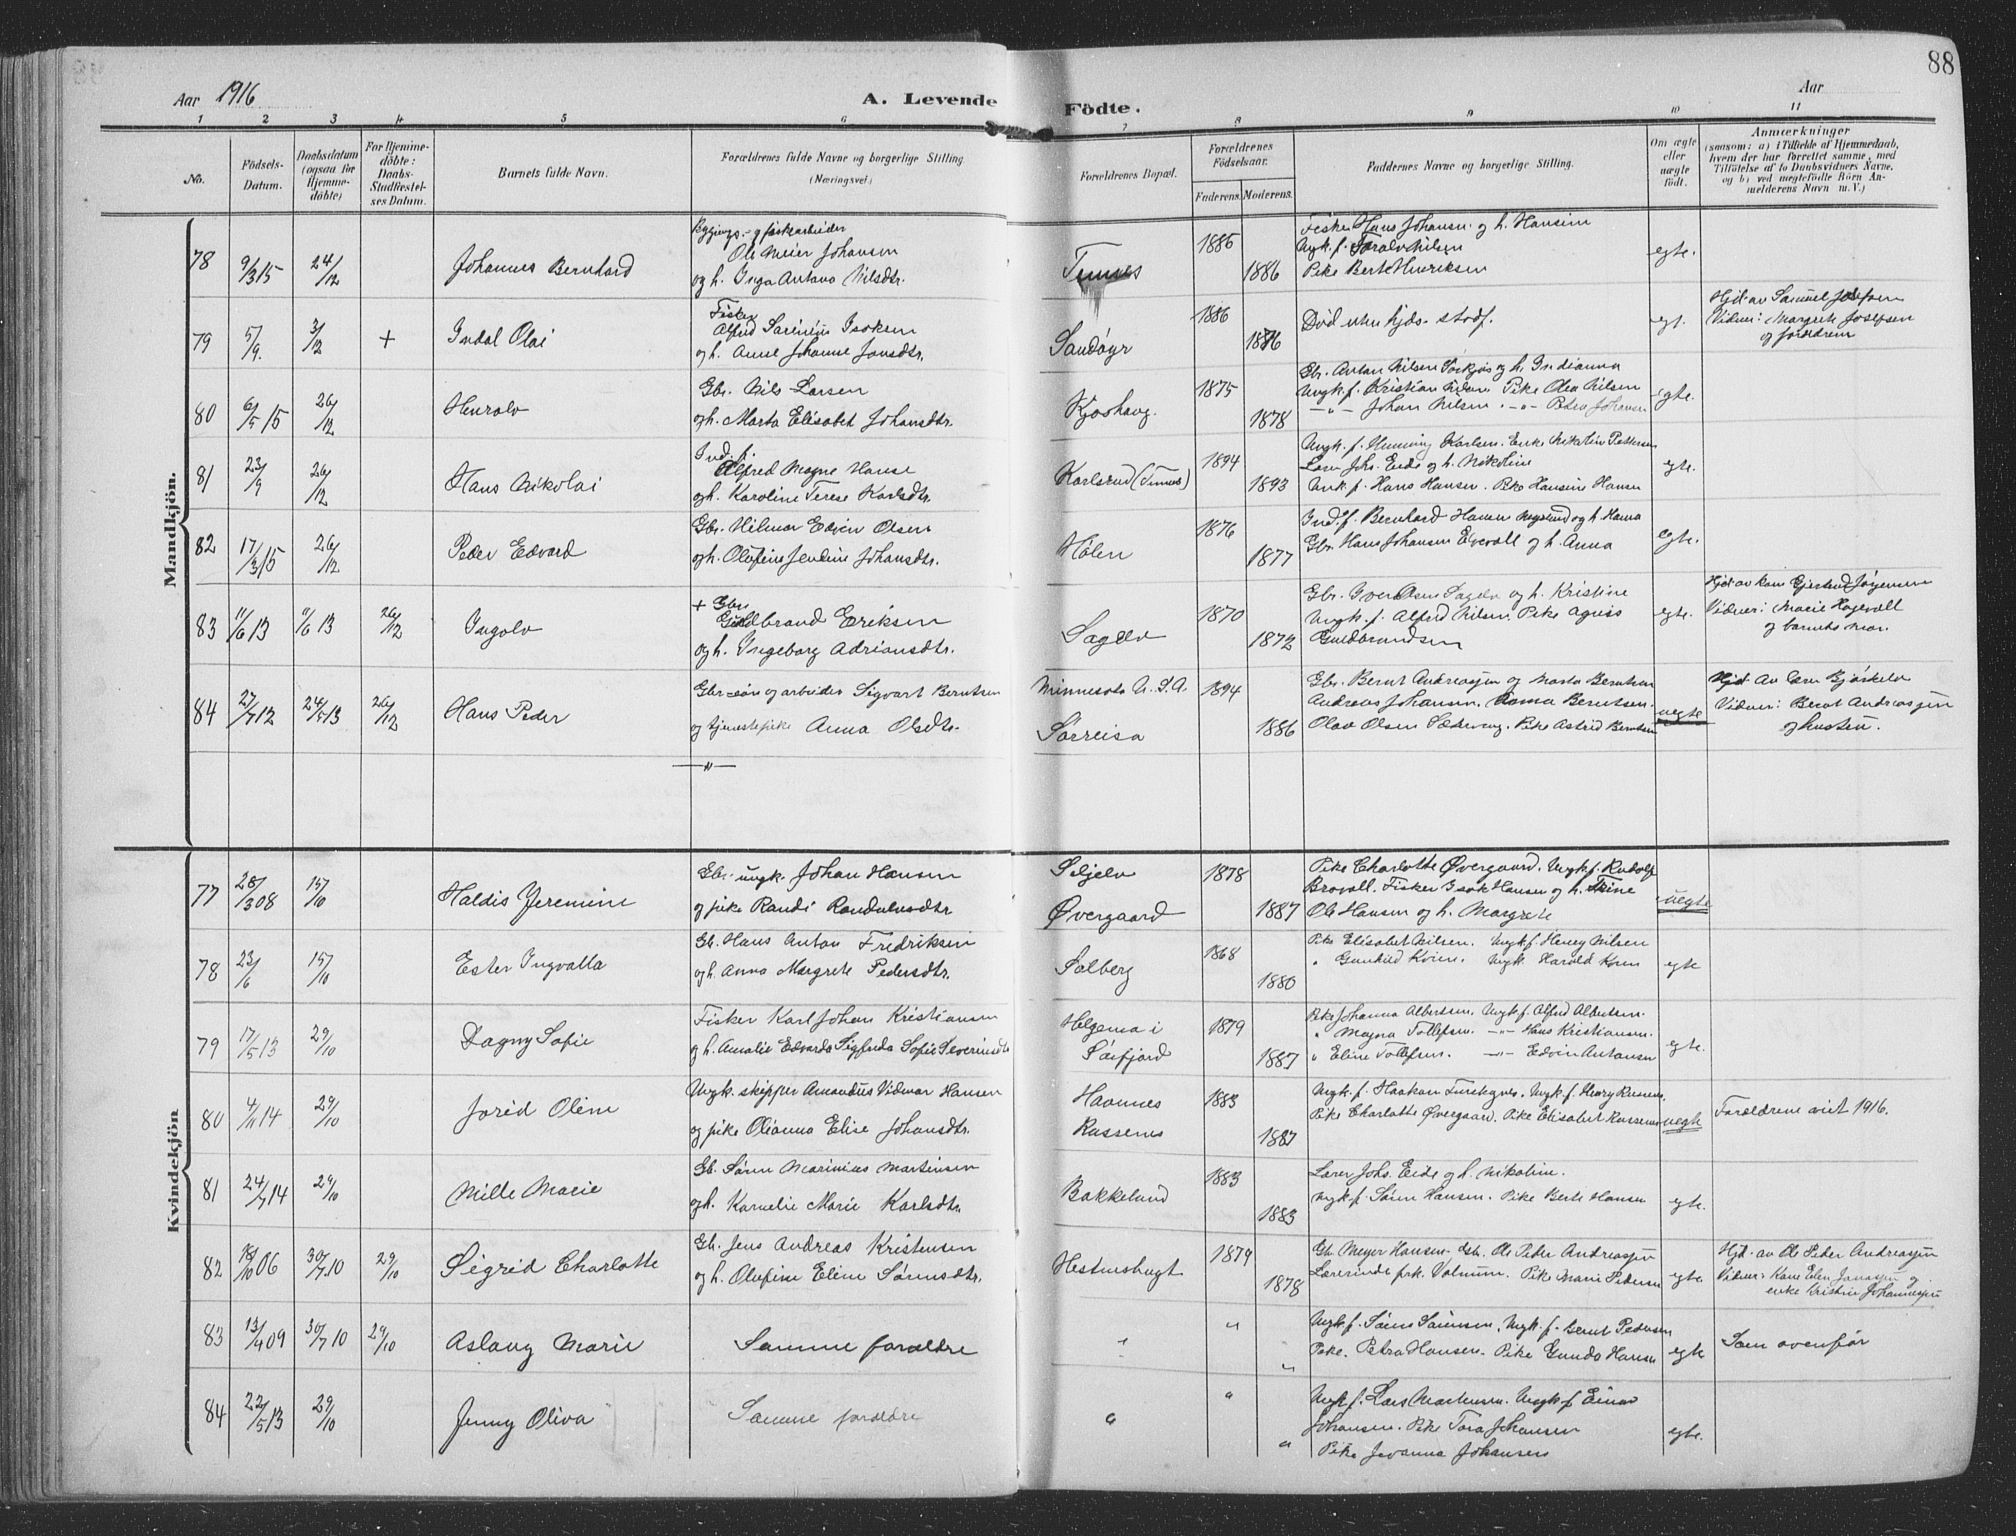 88
Aar 1916
A. Levende Födte.
Aar
1 2 3 4 5 6 7 8 9 10 11
No.
Födsels-Datum.
Daabsdatum (ogsaa for Hjemme-döbte)
For Hjemme-döbte: Daabs-Stadfæstel-ses Datum.
Barnets fulde Navn.
Forældrenes fulde Navne og borgerlige Stilling (Næringsvei)
Forældrenes Bopæl.
Forældrenes Födselsaar.
Faderens. Moderens.
Faddernes Navne og borgerlige Stilling.
Om ægte eller uægte födt.
Anmærkninger
(saasom: a) i Tilfælde af Hjemmedaab,
hvem der har forrettet samme, med
Tilföielse af to Daabsvidners Navne,
og b) ved uegtefödte Börn An-
melderens Navn m. V.)
Mandkjön.
78 9/3 15 24/12 Johannes Bernhard
Ole Meier Johansen
og h. Inga Antona Nilsdtr.
1886 1886
Fisker Hans Johansen og h. Hansine
Ungk. f. Toralv Nilsen
Pike Berte Henriksen
egte.
79 5/9. 3/12 + Indal Olai
Fisker
Alfred Sørenius Isaksen
og h. Anne Johanne Jonsdtr.
Sandøyr 1886 1876
Død uten hjds. stadf.
egt.
Hjd. av Samuel Josefsen
Vidner: Margrete Josefsen
og forældrene
80 6/5 15 26/12
Gbr. Nils Larsen
og h. Marta Elisabet Johansdtr.
Kjoshavg. 1875 1878
Gbr. Anton Nilsen og h. Indianna
Ungk. f. Kristian Nilsen Pike Olea Nilsen
—"— Johan Nilsen. —"— Petra Johansen
egte.
81 23/9 26/12 Hans Nikolai
Ind. f.
Alfred Magne Hansen
og h. Karoline Terese Karlsdtr.
Karlstad (Finnes) 1894 1893
Ungk. f. Henning Karlsen. Enke Nikoline Pettersen
Lærer Johs. Eide og h. Nikoline
Ungk. f. Hans Hansen. Pike Hansine Hansen
egte.
82 17/3 15 26/12 Peder Edvard
Gbr. Hilmar Edvin Olsen
og h. Olufine Jendine Johansdtr.
Hølen 1876 1877
Ind. f. Bernhard Hansen og h. Hanna
Gbr. Hans Johansen Elvevoll og h. Anna
egte.
83 11/6 13 11/6 13 26/12 Ingolv
+ Gbr.
Guldbrand Eriksen
og h. Ingeborg Adriansdtr.
Sagelv 1870 1872
Gbr. Iver Olsen Sagelv og h. Kristine
Ungk. f. Alfred Nilsen. Pike Agnes
Guldbrandsen
egte.
Hjd. av kone Gjertrud Jørgensen
Vidner: Marie Hagevoll
og barnets mor.
84 27/7 12 24/5 13 26/12 Hans Peder
Gbr-søn og arbeider Sigvart Berntsen
og tjenestepike Anna Olsdtr.
Minnesota U.S.A. 1894
Sørreisa 1886
Gbr. Bernt Andreassen og Marta Berntsen
Andreas Johansen. Anna Berntsen
Olav Olsen Sætervag. Pike Astrid Berntsen
uegte
Hjd. av Bjørkelv
Vidner: Bernt Andreassen
og hustru.
—"—
Kvindekjön
77 28/3 08 15/10 Haldis Jeremine
Gbr. ungk. Johan Hansen
og pike Randi Randulvsdtr
Seljelv 1878
Øvergaard 1887
Pike Charlotte Øvergaard. Ungk. f. Rudolf
Brovoll. Fisker Isak Hansen og h. Trine
Ole Hansen og h. Margrete
uegte
78 23/6 15/10 Ester Ingvalla
Gb. Hans Anton Fredriksen
og h. Anna Margrete Pedersdtr.
Solberg 1868 1880
Pike Elisabet Nilsen. Ungk. f. Henry Nilsen
" Gunhild Kvien. Ungk. Harold Koren
egte
79 17/5 13 29/10 Dagny Sofie
Fisker Karl Johan Kristiansen
og h. Amalie Edvarda Sigfrida Sofie Severinsdtr
Helgenna i 1879
Sørfjord 1887
Pike Johanna Albertsen. Ungk. f. Alfred Albertsen.
" Magna Tollefsen. —"— Hans Kristiansen.
" Eline Tollefsen. —"— Edvin Antonsen
egte.
80 4/11 14 29/10 Jorid Oline
Ungk. skipper Amandus Vidnar Hansen
og pike Oleanna Elise Johansdtr.
Havnnes 1883
Russenes 1887
Pike Charlotte Øvergaard. Pike Elisabet Russenes
uegte
Forældrene viet 1916.
81 24/7 14 29/10 Mille Marie
Gb. Søren Marinius Martinsen
og h. Kornelie Marie Karlsdtr.
Bakkelund 1883 1883
Lærer Johs. Eide og h. Nikoline.
Ungk. f. Søren Hansen. Pike Berte Hansen
egte.
82 18/10 06 30/7 10 29/10 Sigrid Charlotte
Gb. Jens Andreas Kristensen
og h. Olufine Eline Sørensdtr.
Hestnesbugt 1879 1878
Gb. Meyer Hansen. Gb. Ole Peder Andreassen
Lærerinde frk. Volnum. Pike Marie Pedersen
egte
Hjd. av Ole Peder Andreassen
Vidner: Kone Elen Jonassen og
enke Kristine Johannessen
83 13/9 09 30/7 10 29/10 Aslaug Marie
Samme forældre
" " "
Ungk. f. Søren Sørensen. Ungk. f. Bernt Pedersen
Pike. Petra Hansen. Pike Gunda Hansen
egte
Som ovenfor
84 22/5 13 29/10 Jenny Oliva
Samme forældre
" " "
Ungk. f. Lars Martensen. Ungk f. Einar
Johansen. Pike Tora Johansen
Pike Jovanna Johansen
egte.